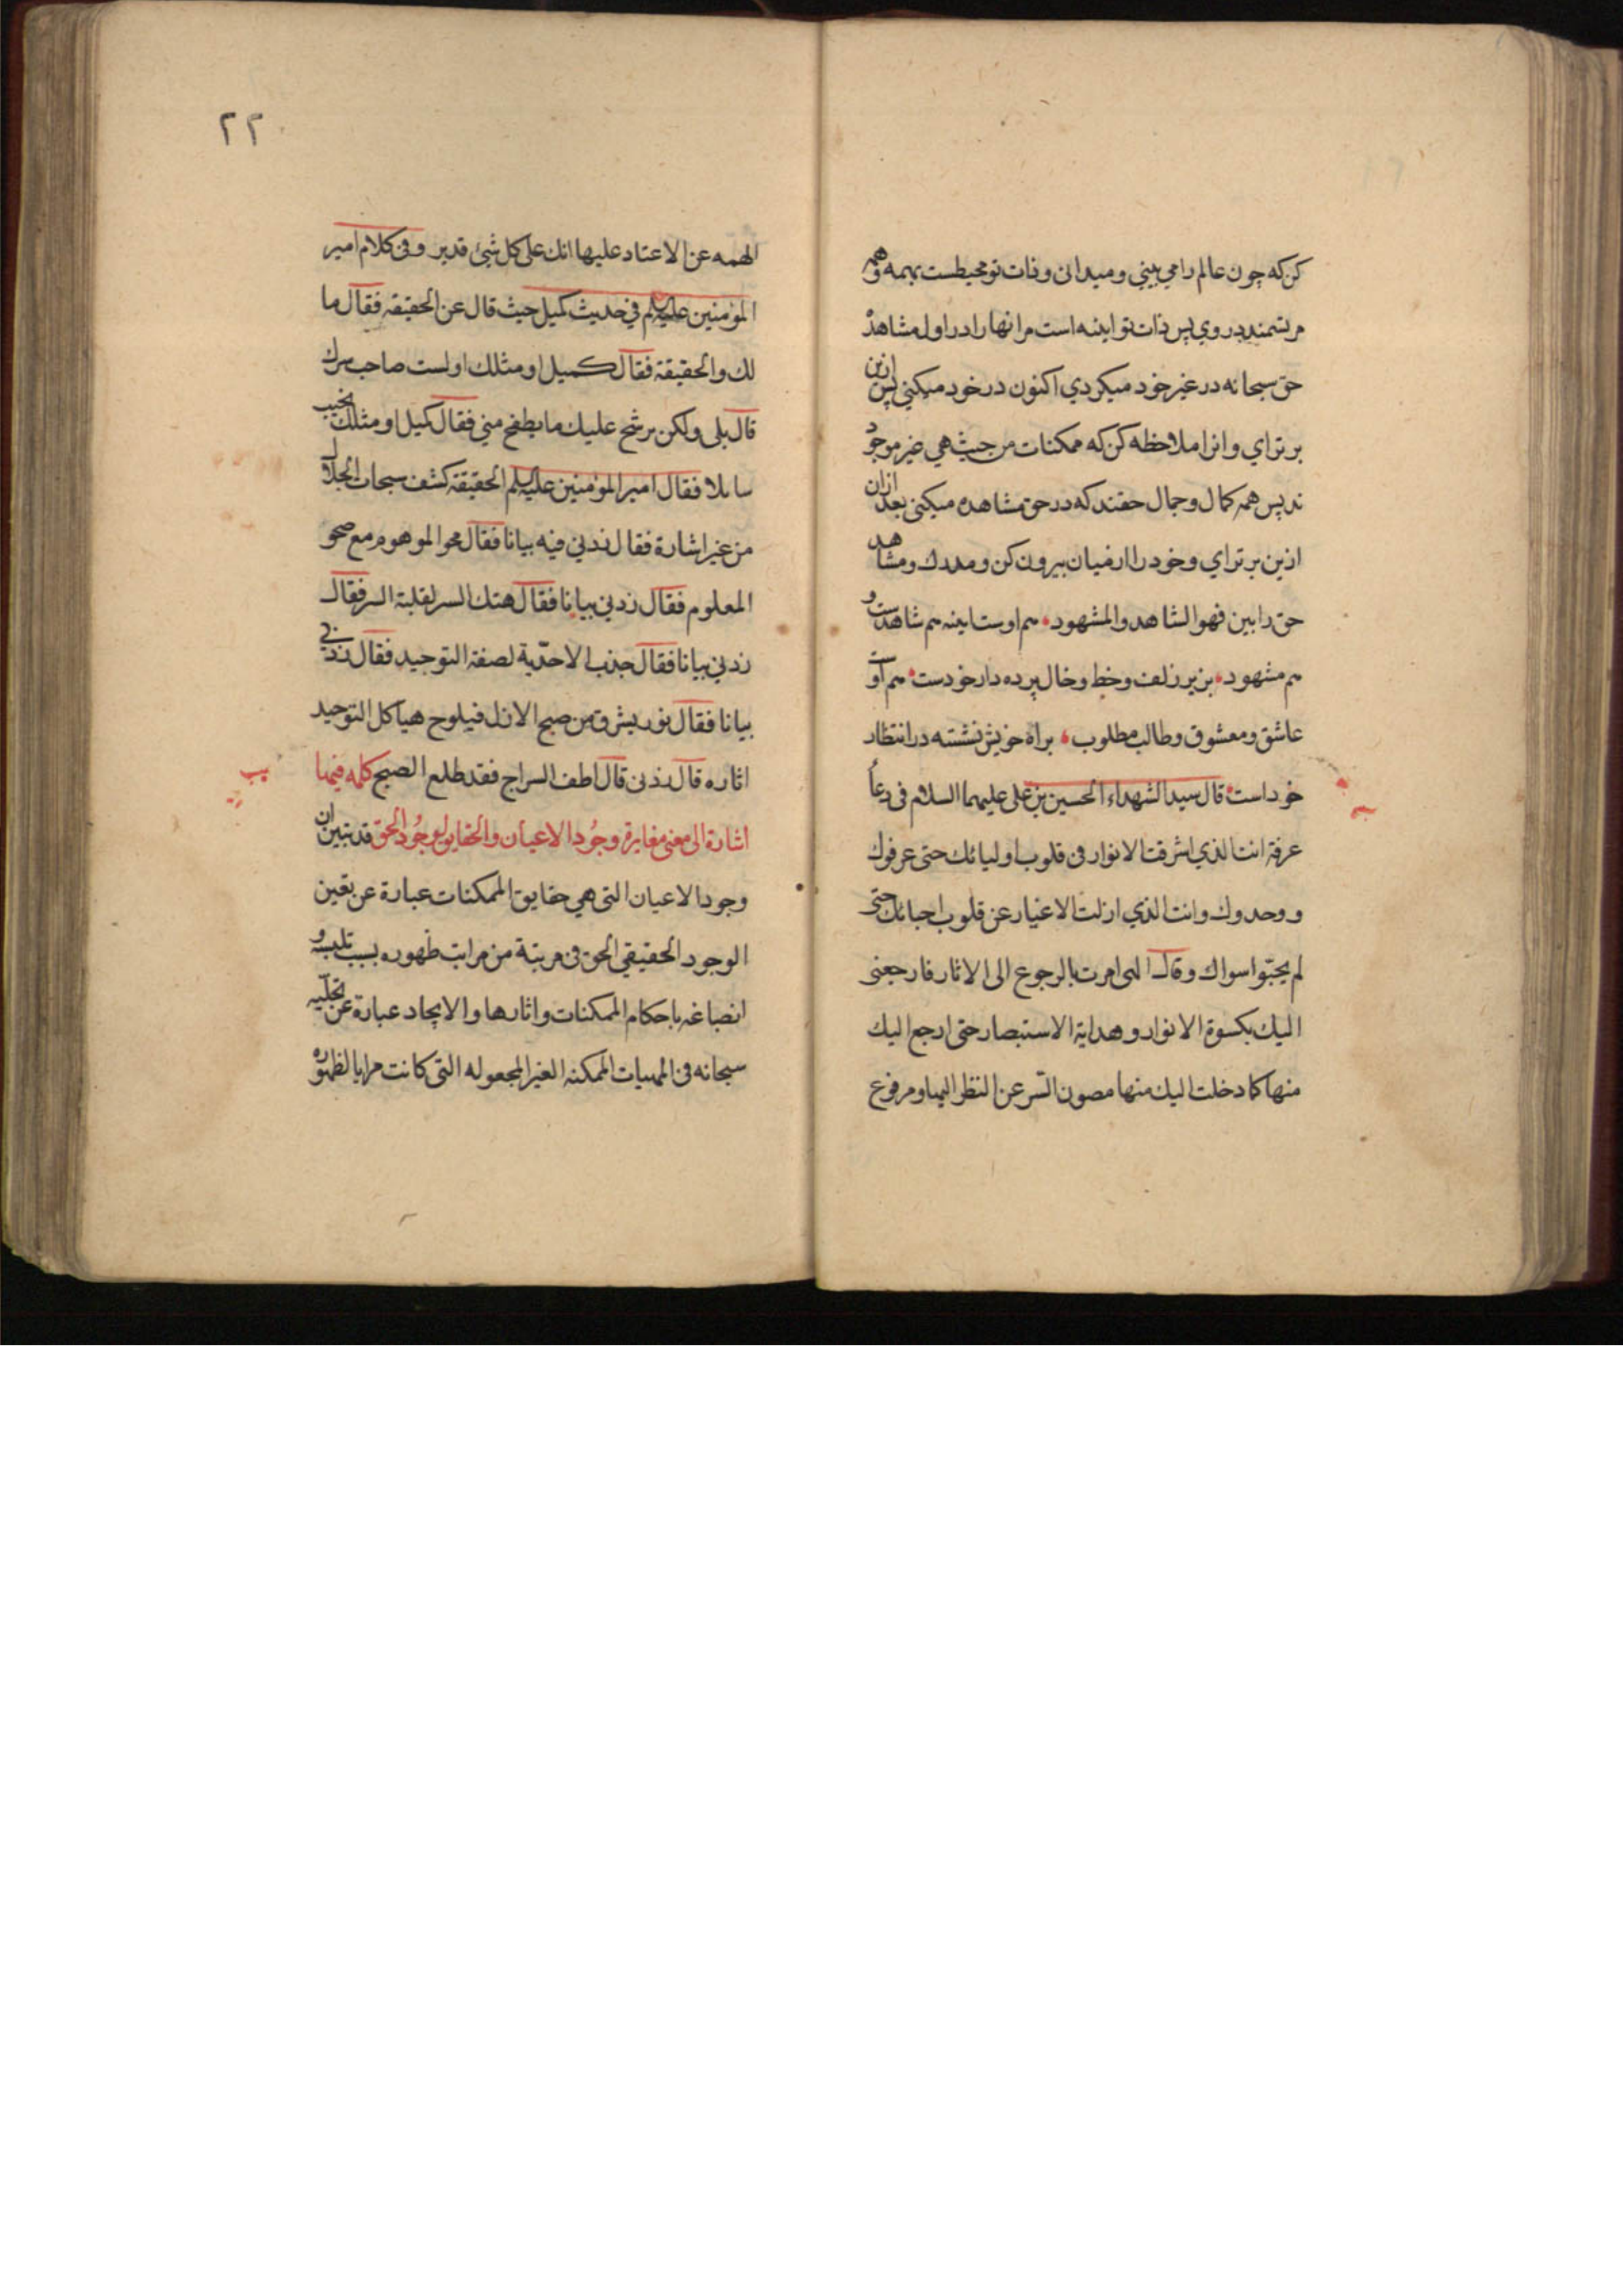 كن كه چون عالم را مي بيني و ميداني و ذات تو محيطست بهمه و همه
مرتسمند در وي پس ذات تو اينه است مرانها را در اول مشاهدهٔ
حق سبحانه در غير خود ميكردي اكنون در خود ميكني پس ازين
برتر اي و انرا ملاحظه كن كه ممكنات من حيث هي غير موجود
ند پس همه كمال و جمال حقند كه در حق مشاهده ميكني بعد ازان
ازين برتر اي و خود را از ميان بيرون كن و مدرك و مشاهد
حق را بين فهو الشاهد والمشهود هم اوست اينه هم شاهدست و
هم مشهود بزير زلف و خط و خال پرده دار خودست هم اوست
عاشق و معشوق و طالب مطلوب براه خويش نشسته در انتظار
خود است قال سيد الشهداء الحسين بن علي عليهما السلام في دعاء
عرفة انت الذي اشرقت الانوار في قلوب اوليائك حتى عرفوك
و وحدوك وانت الذي ازلت الاغيار عن قلوب احبائك حتى
لم يحبّوا سواك وقال الهى امرت بالرجوع الى الاثار فارجعنى
اليك بكسوة الانوار وهداية الاستبصار حتى ارجع اليك
منها كما دخلت اليك منها مصون السّر عن النظر اليها ومرفوع
٢٢
الهمه عن الاعتماد عليها انك على كل شئ قدير وفى كلام امير
المؤمنين عليه السلم في حديث كميل حيث قال عن الحقيقة فقال ما
لك والحقيقة فقال كميل او مثلك اولست صاحب سرك
قال بلى ولكن يرشح عليك ما يطفح مني فقال كميل او مثلك يخيب
سايلا فقال امير المؤمنين عليه السلم الحقيقة كشف سبحات الجلال
من غير اشارة فقال زدني فيه بيانا فقال محو الموهوم مع صحو
المعلوم فقال زدني بيانا فقال هتك السر لغلبة السر فقال
زدني بيانا فقال جذب الاحدّية لصفة التوحيد فقال زدني
بيانا فقال نور يشرق من صبح الازل فيلوح هياكل التوحيد
اثاره قال زدنى قال اطف السراج فقد طلع الصبح كلمه فيها
اشارة الى معنى مغايرة وجُود الاعيان والحقايق لوجُود الحق قد تبين ان
وجود الاعيان التى هي حقايق الممكنات عبارة عن تعين
الوجود الحقيقي الحق فى مرتبة من مراتب ظهوره بسبب تلبسه و
انصباغه باحكام الممكنات واثارها والايجاد عبارة عن تجلّيه
سبحانه فى المهيات الممكنه الغير المجعوله التى كانت مرايا لظهوره